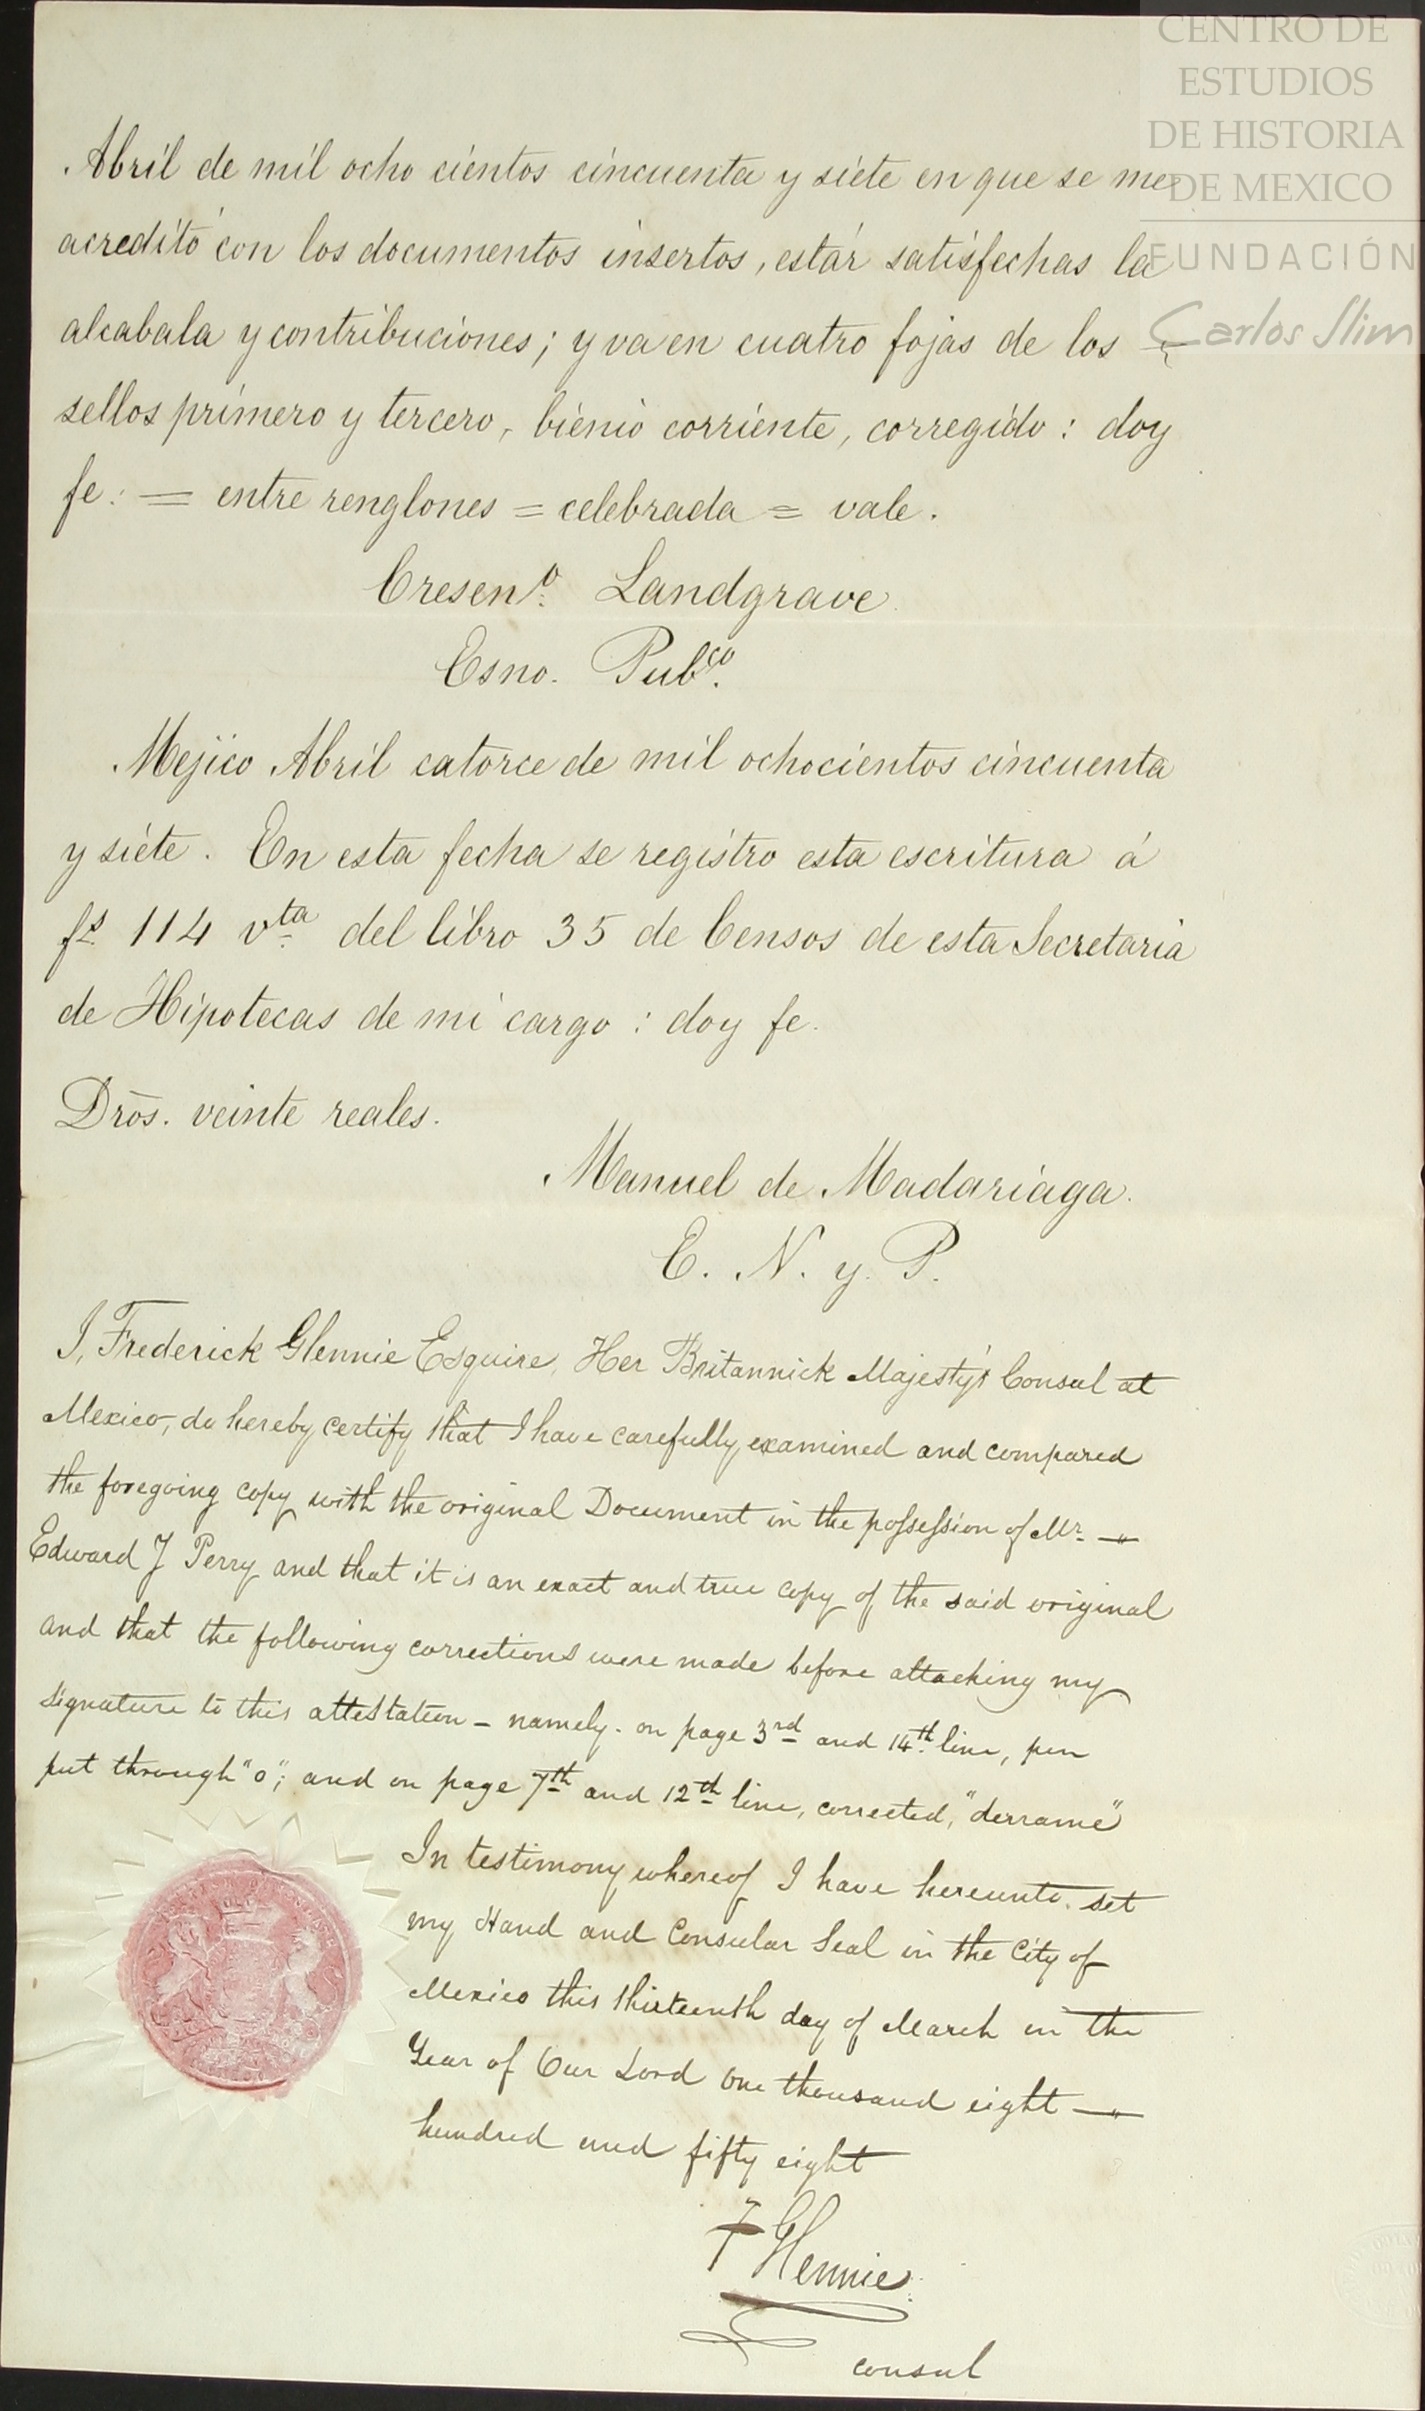 CENTRO DE
ESTUDIOS
DE HISTORIA
DE MEXICO
FUNDACIÓN
Carlos Slim
Abril de mil ocho cientos cincuenta y siete en que se me
acreditó con los documentos insertos, estár satisfechas la
alcabala y contribuciones; y va en cuatro fojas de los
sellos primero y tercero, bienio corriente, corregido: doy
fe: = entre renglones = celebrada = vale.
Cresen.º Landgrave.
Esno. Pub.co
Mejico Abril catorce de mil ochocientos cincuenta
y siete. En esta fecha se registro esta escritura á
fs. 114 v.ta del libro 35 de Censos de esta Secretaria
de Hipotecas de mi cargo: doy fe.
Dros. veinte reales.
Manuel de Madariaga.
E. N. y P.
I, Frederick Glennie Esquire, Her Britannick Majesty's Consul at
Mexico, do hereby certify that I have carefully examined and compared
the foregoing copy with the original Document in the possession of Mr. —
Edward J Perry and that it is an exact and true copy of the said original
and that the following corrections were made before attaching my
signature to this attestation - namely. on page 3rd and 14th line, pen
put through "o"; and on page 7th and 12th line, corrected, "derrame"
In testimony whereof I have hereunto set
my Hand and Consular Seal in the City of
Mexico this thirteenth day of March in the
Year of Our Lord one thousand eight —
hundred and fifty eight
F Glennie
consul